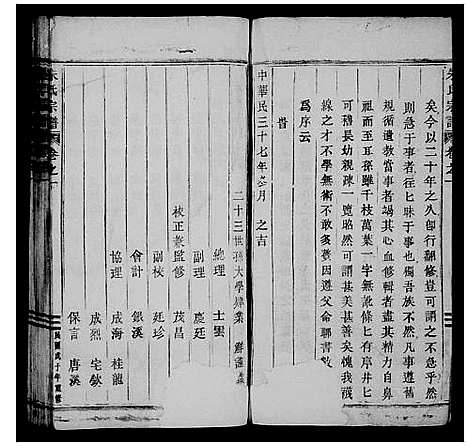 朱氏宗譜 卷之一
矣今以二十年之久卽行翻修豈可謂
則急于事者往匕昧于事也獨吾族不然凡事遵舊
規循遺教當事者竭其心血修斯譜者其精力自鼻
祖而至耳孫雖千枝萬葉一字無訛有序井匕
可稽長幼親疎一覽昭然可謂甚美甚善矣愧我殘
線之才不學無術不敢多贅因遵父命聊書數
爲序云
旹
中華民三十七年 月 之吉
二十三世孫大學肄業
總理 士雲
副理 慶廷
校正兼監修 茂昌
副校 廷珍
會計 銀溪
協理 成海 桂龍
成烈 宅欽
保言 唐溪
民國戊子年重修
朱氏宗譜 卷之一